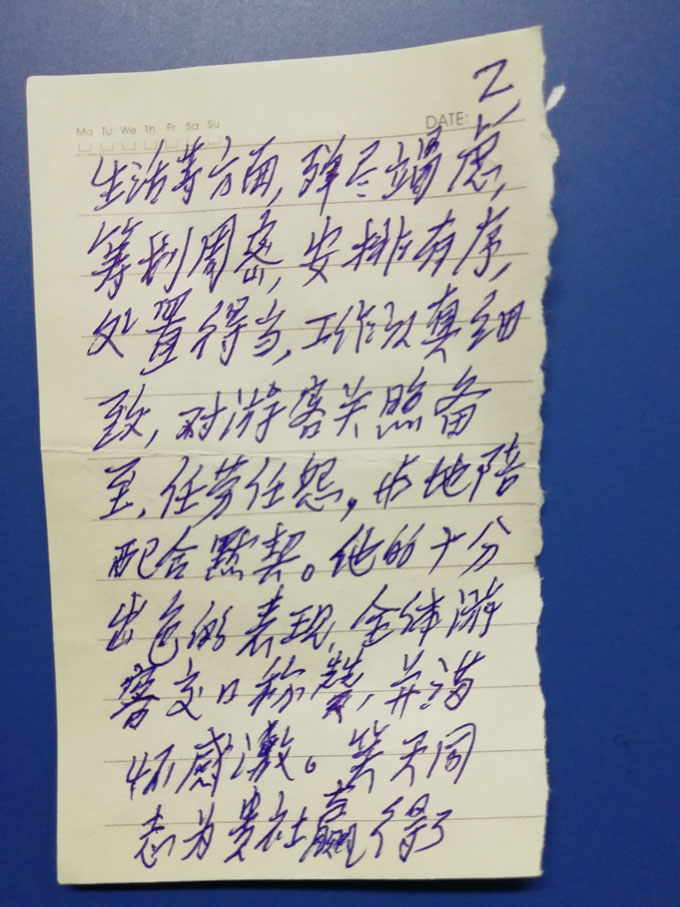 2
Mo Tu We Th Fr Sa Su
DATE:
生活等方面,殚尽竭虑,
筹划周密,安排有序,
处置得当,工作认真细
致,对游客关照备
至,任劳任怨,与地陪
配合默契。他的十分
出色的表现,全体游
客交口称赞,并满
怀感激。 天同
志为贵社赢得了